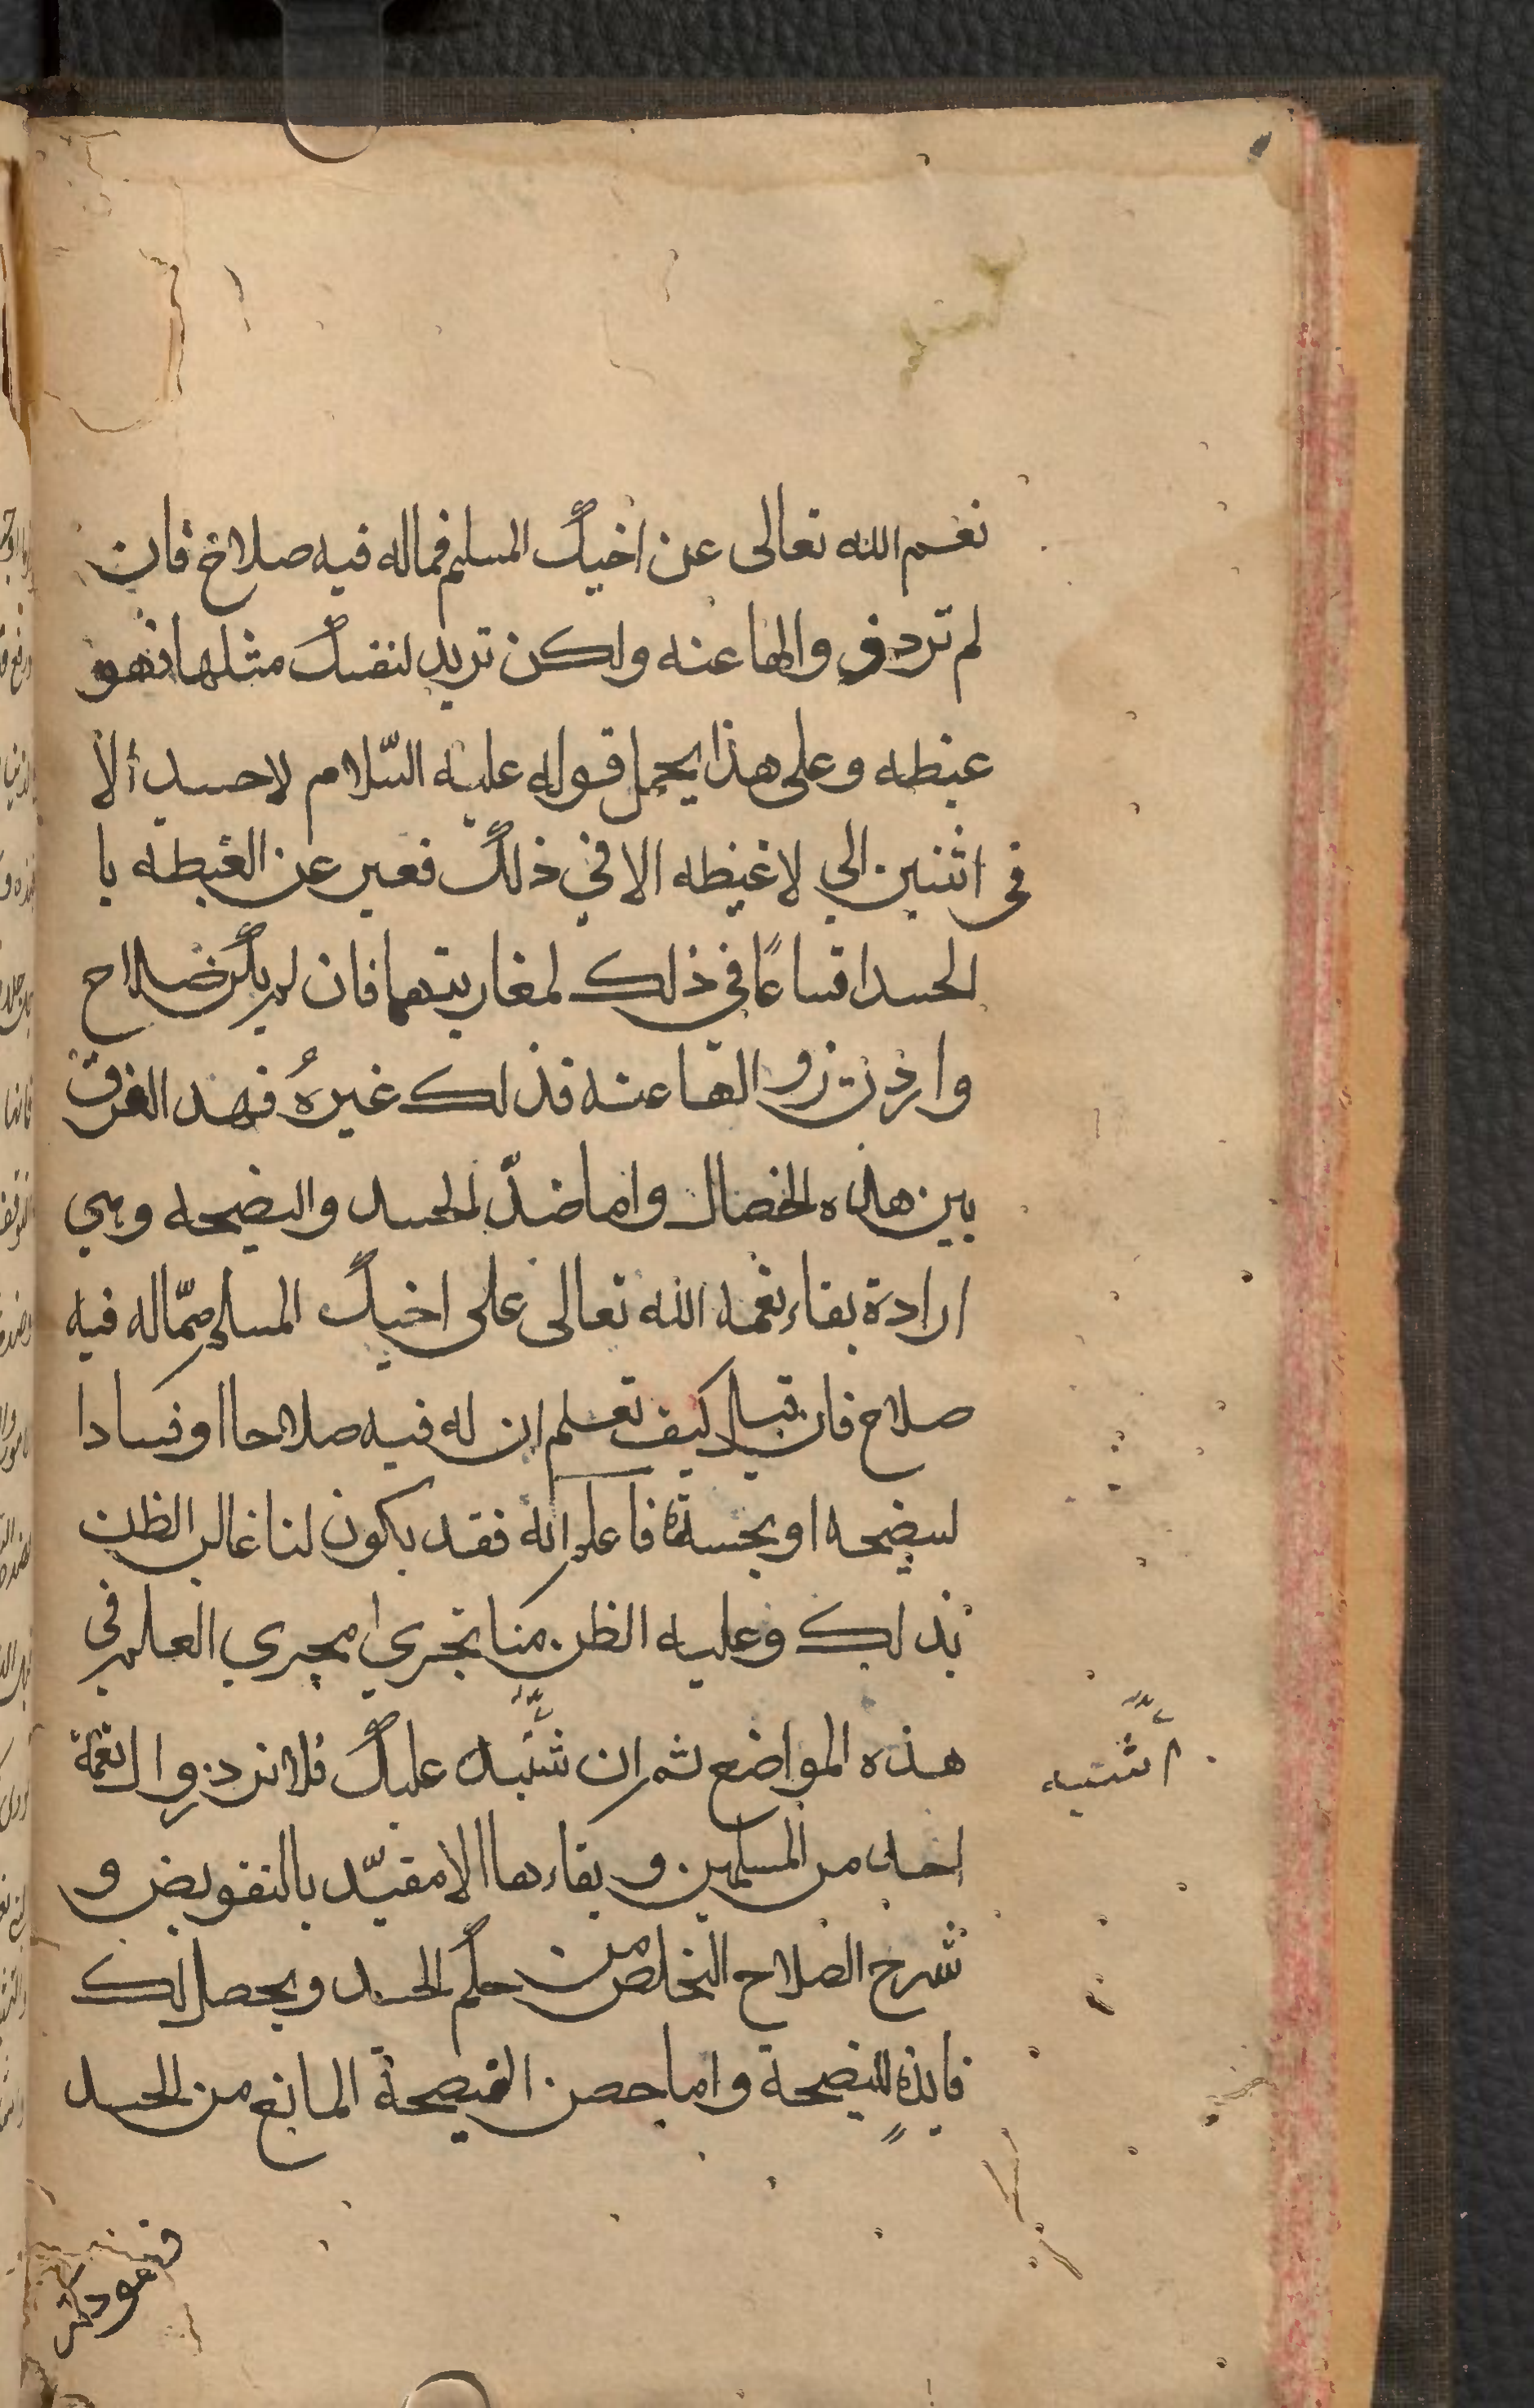 نعم الله تعالى عن اخيك المسلم فماله فيه صلاح فان
لم ترد زوالها عنه ولكن تريد لنفسك مثلها فهو
غبطه وعلى هذا يحمل قوله عليه السّلام لاحسد ألا
في اثنين الي لاغبطه الا في ذلك فعبر عن الغبطه با
الحسد اتساعًا في ذلك لمقاربتهما فان لم يكن صلاح
واردت زوالها عنه فذلك غيرهُ فهد الفرق
بين هذه الخصال واما ضدّ الحسد والنصيحه وهي
ارادة بقاء نعمه الله تعالى على اخيك المسلم ممّاله فيه
صلاح فان قيل كيف تعلم ان له فيه صلاحا او فسادا
لنصيحه او بحسدة فاعلم انه فقد يكون لنا غالب الظن
بذلك وغلبه الظن منا تجري مجري العلم في
هذه المواضع ثم ان شتبه عليك فلا ترد زوال نعمة
احد من المسلمين وبقاءها الا مقيّد بالتفويض و
شرح الصلاح التخلص من حكم الحسد ويحصل لك
فايدةٍ النصيحة واما حصن النصيحة المانع من الحسد
اشتبه
فهو ذكر